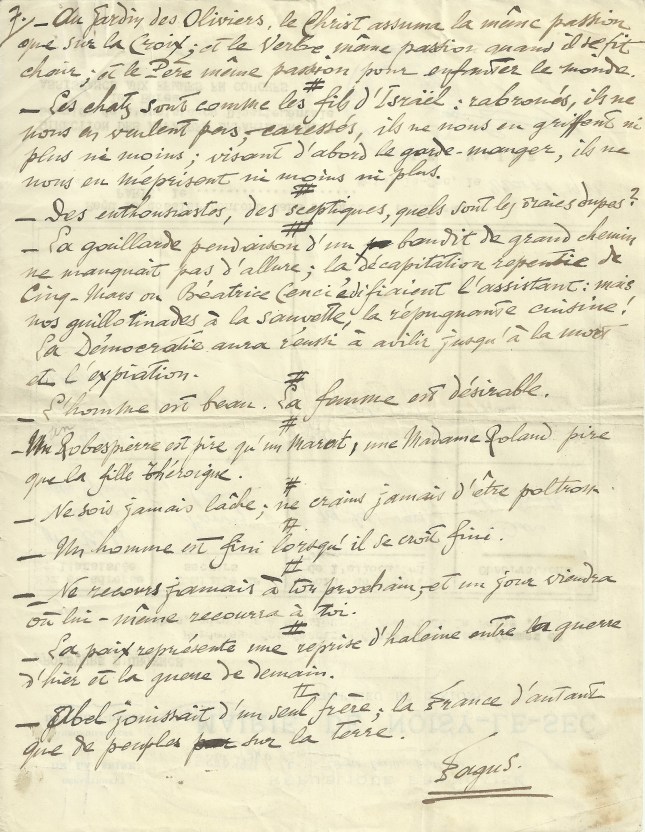 7. — Au Jardin des Oliviers, le Christ assuma la même passion
que sur la Croix ; et le Verbe même passion quand il se fit
chair ; et le Père même passion pour enfanter le monde.
#
— Les chats sont comme les fils d'Israël : rabroués, ils ne
nous en veulent pas, — caressés, ils ne nous en griffent ni
plus ni moins ; visant d'abord le garde-manger, ils ne
nous en méprisent ni moins ni plus.
#
— Des enthousiastes, des sceptiques, quels sont les vraies dupes ?
#
— La gaillarde pendaison d'un bandit de grand chemin
ne manquait pas d'allure ; la décapitation repentie de
Cinq-Mars ou Béatrice Cenci édifiaient l'assistant : mais
nos guillotinades à la sauvette, la repugnante cuisine !
La Démocratie aura réussi à avilir jusqu'à la mort
et l'expiation.
#
— L'homme est beau. La femme est désirable.
#
— Un Robespierre est pire qu'un Marat, une Madame Roland pire
que la fille Théroigne.
#
— Ne sois jamais lâche ; ne crains jamais d'être poltron.
#
— Un homme est fini lorsqu'il se croit fini.
#
— Ne recours jamais à ton prochain, et un jour viendra
où lui-même recourra à toi.
#
— La paix représente une reprise d'haleine entre la guerre
d'hier et la guerre de demain.
#
— Abel jouissait d'un seul frère ; la France d'autant
que de peuples sur la terre.
Fagus.
NOISY-LE-SEC